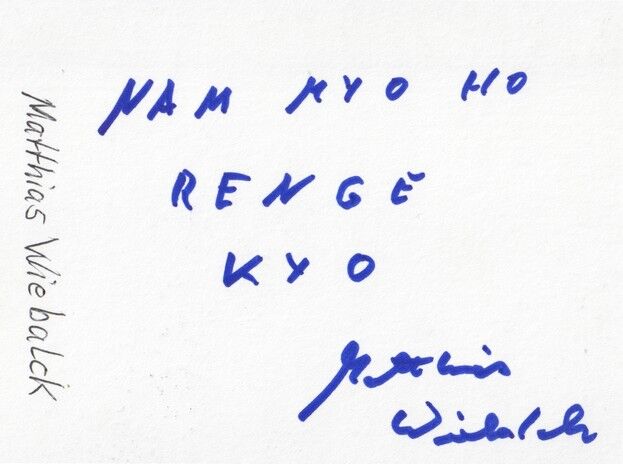 Matthias Wiebalck
NAM MYO HO
RENGE
KYO
Matthias
Wiebalck